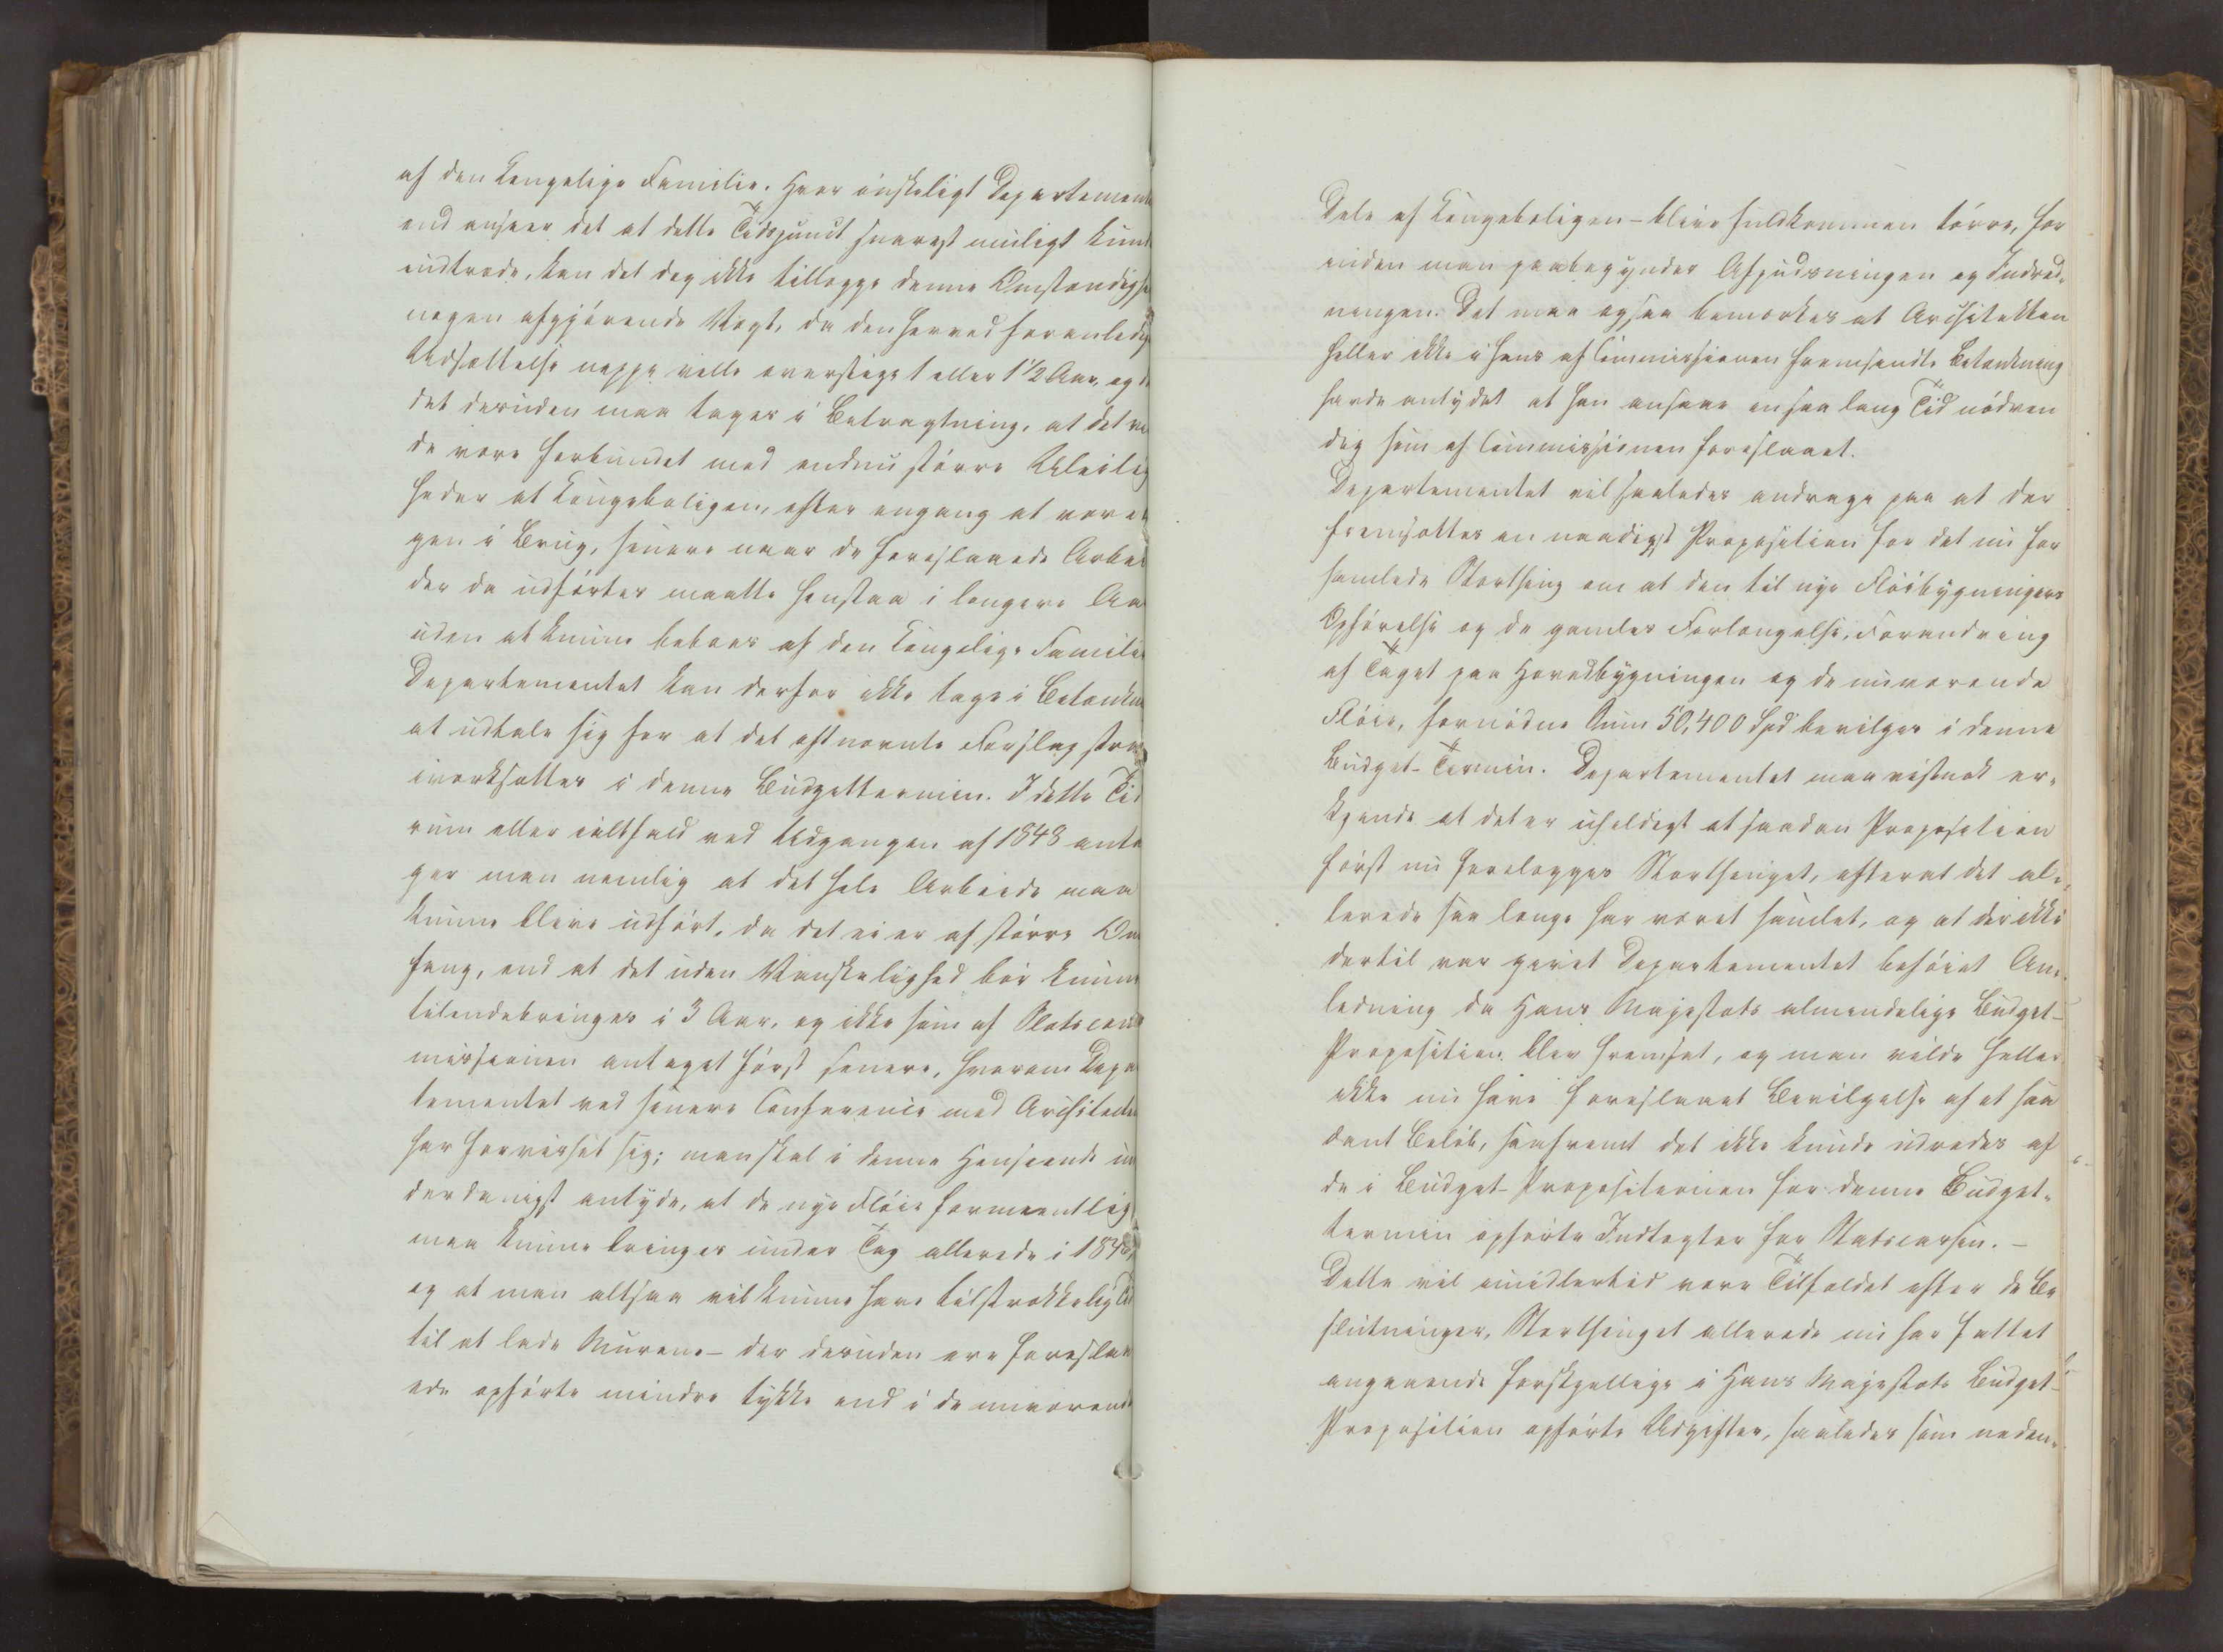 af den Kongelige Familie. Hvor ønskeligt Departement
end anseer det at dette Tidspunct snarest muligt kun
indtræde, kan det dog ikke tillægge denne Omstændigh
nogen afgjørende Vægt, da den herved foranledig
Udsættelse neppe ville overstige 1 eller 1 1/2 Aar, og
det desuden maa tages i Betragtning, at det
de være forbundet med endnu større Uleilig
heder at Kongeboligen, efter engang at være
gen i Brug, senere naar de foreslaaede Arbei
der da udførtes maatte henstaa i længere
uden at kunne beboes af den Kongelige Familie
Departementet kan derfor ikke tage i Betænkn
at udtale sig for at det oftnævnte Forslag strax
iværksættes i denne Budgettermin. I dette Tids
rum eller ialtfald ved Udgangen af 1848 anta
ger man nemlig at det hele Arbeide maa
kunne blive udført, da det ei er af større Om
fang, end at det uden Vanskelighed bør kunne
tilendebringes i 3 Aar, og ikke som af Slotscom
missionen antaget først senere, hvorom Depar
tementet ved senere Conference med Architecten
har forvisset sig; man skal i denne Henseende un
derdanigst antyde, at de nye Fløie formeentlig
maa kunne bringes under Tag allerede i
og at man altsaa vil kunne have tilstrækkelig Tid
til at lade Murene - der desuden ere foreslaa
ede opførte mindre tykke end i de nuværende
Dele af Kongeboligen - blive fuldkommen tørre, for
inden man paabegynder Afpudsningen og Indred-
ningen. Det maa ogsaa bemærkes at Architekten
heller ikke i hans af Commissionen fremsendte Betænkning
havde antydet at han ansaae en saa lang Tid nødven
dig som af Commissionen foreslaaet.
Departementet vil saaledes andrage paa at der
fremsættes en naadigst Proposition for det nu for
samlede Storthing om at den til nye Fløibygningers
Opførelse og de gamles Forlængelse, Forandring
af Taget paa Hovedbygningen og de nuværende
Fløie, fornødne Sum 50,400 Spd bevilges i denne
Budget-Termin. Departementet maa vistnok er-
kjende at det er uheldigt at saadan Proposition
først nu forelægges Storthinget, efterat det al-
lerede saa længe har været samlet, og at der ikke
dertil var givet Departementet beføiet An-
ledning da Hans Majestæts almindelige Budget-
Proposition blev fremsat, og man vilde heller
ikke nu have foreslaaet Bevilgelse af et saa
dant Beløb, saafremt det ikke kunde udredes af
de i Budget-Propositionen for denne Budget-
termin opførte Indtægter for Statscassen. -
Dette vil imidlertid være Tilfældet efter de Be
slutninger, Storthinget allerede nu har fattet
angaaende forskjellige i Hans Majestæts Budget-
Proposition opførte Udgifter, saaledes som neden-